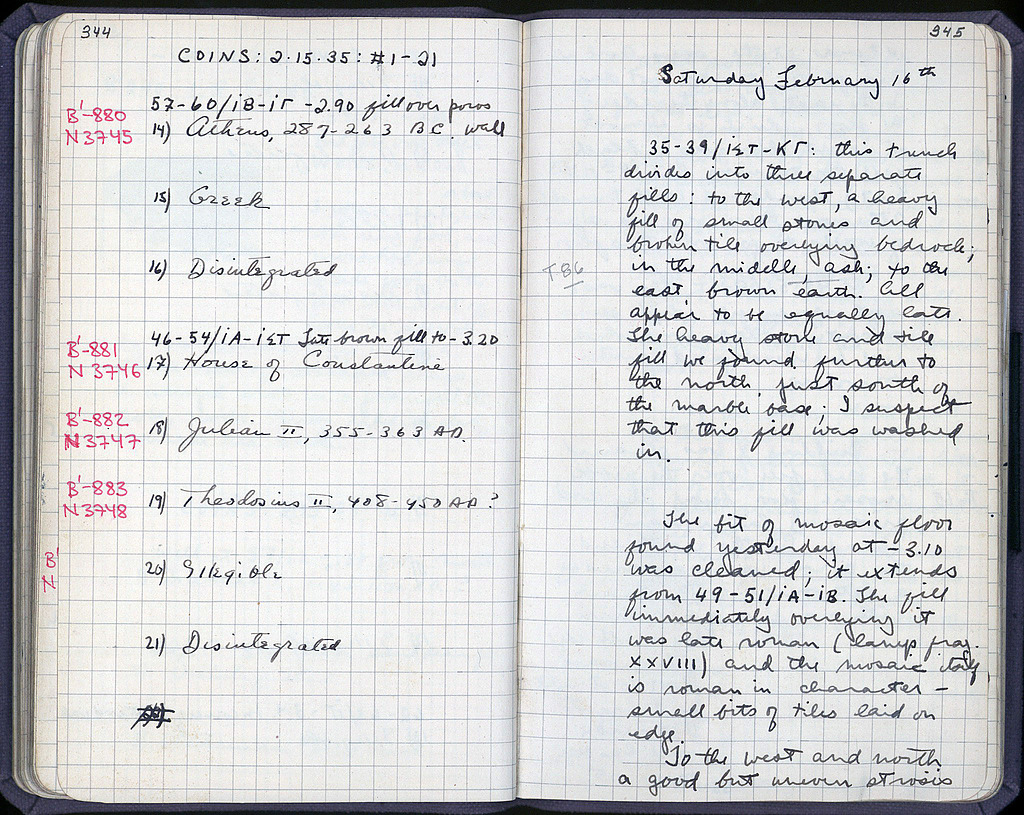 344
COINS: 2.15.35: #1-21
57-60/ΙΒ-ΙΓ -2.90 fill over poros
B'-880
N3745
14) Athens, 287-263 BC. wall
15) Greek
16) Disintegrated
46-54/ΙΑ-ΙΣΤ Late brown fill to -3.20
B'-881
N 3746
17) House of Constantine
B'-882
N3747
18) Julian II, 355-363 AD.
B'-883
N3748
19) Theodosius II, 408-450 AD?
B'
N
20) Illegible
21) Disintegrated
345
Saturday February 16th
35-39/ΙΣΤ-ΚΓ: this trench
divides into three separate
fills: to the west, a heavy
fill of small stones and
broken tile overlying bedrock;
in the middle, ash; to the
T86
east brown earth. All
appear to be equally late.
The heavy stone and tile
fill we found further to
the north, just south of
the marble base; I suspect
that this fill was washed
in.
The bit of mosaic floor
found yesterday at -3.10
was cleaned; it extends
from 49-51/ΙΑ-ΙΒ. The fill
immediately overlying it
was late roman (lamp frag.
XXVIII) and the mosaic itself
is roman in character -
small bits of tiles laid on
edge.
To the west and north
a good but uneven strosis